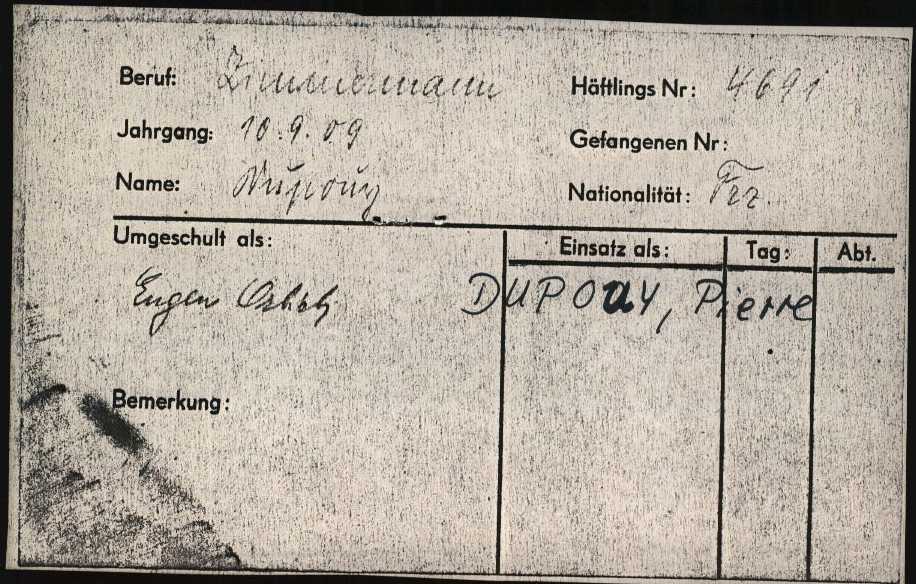 Beruf: Zimmermann Häftlings Nr: 4691
Jahrgang: 10.9.09 Gefangenen Nr:
Name: Dupouy Nationalität: Frz.
Umgeschult als: Einsatz als: Tag: Abt.
Eugen DUPOUY, Pierre
Bemerkung: